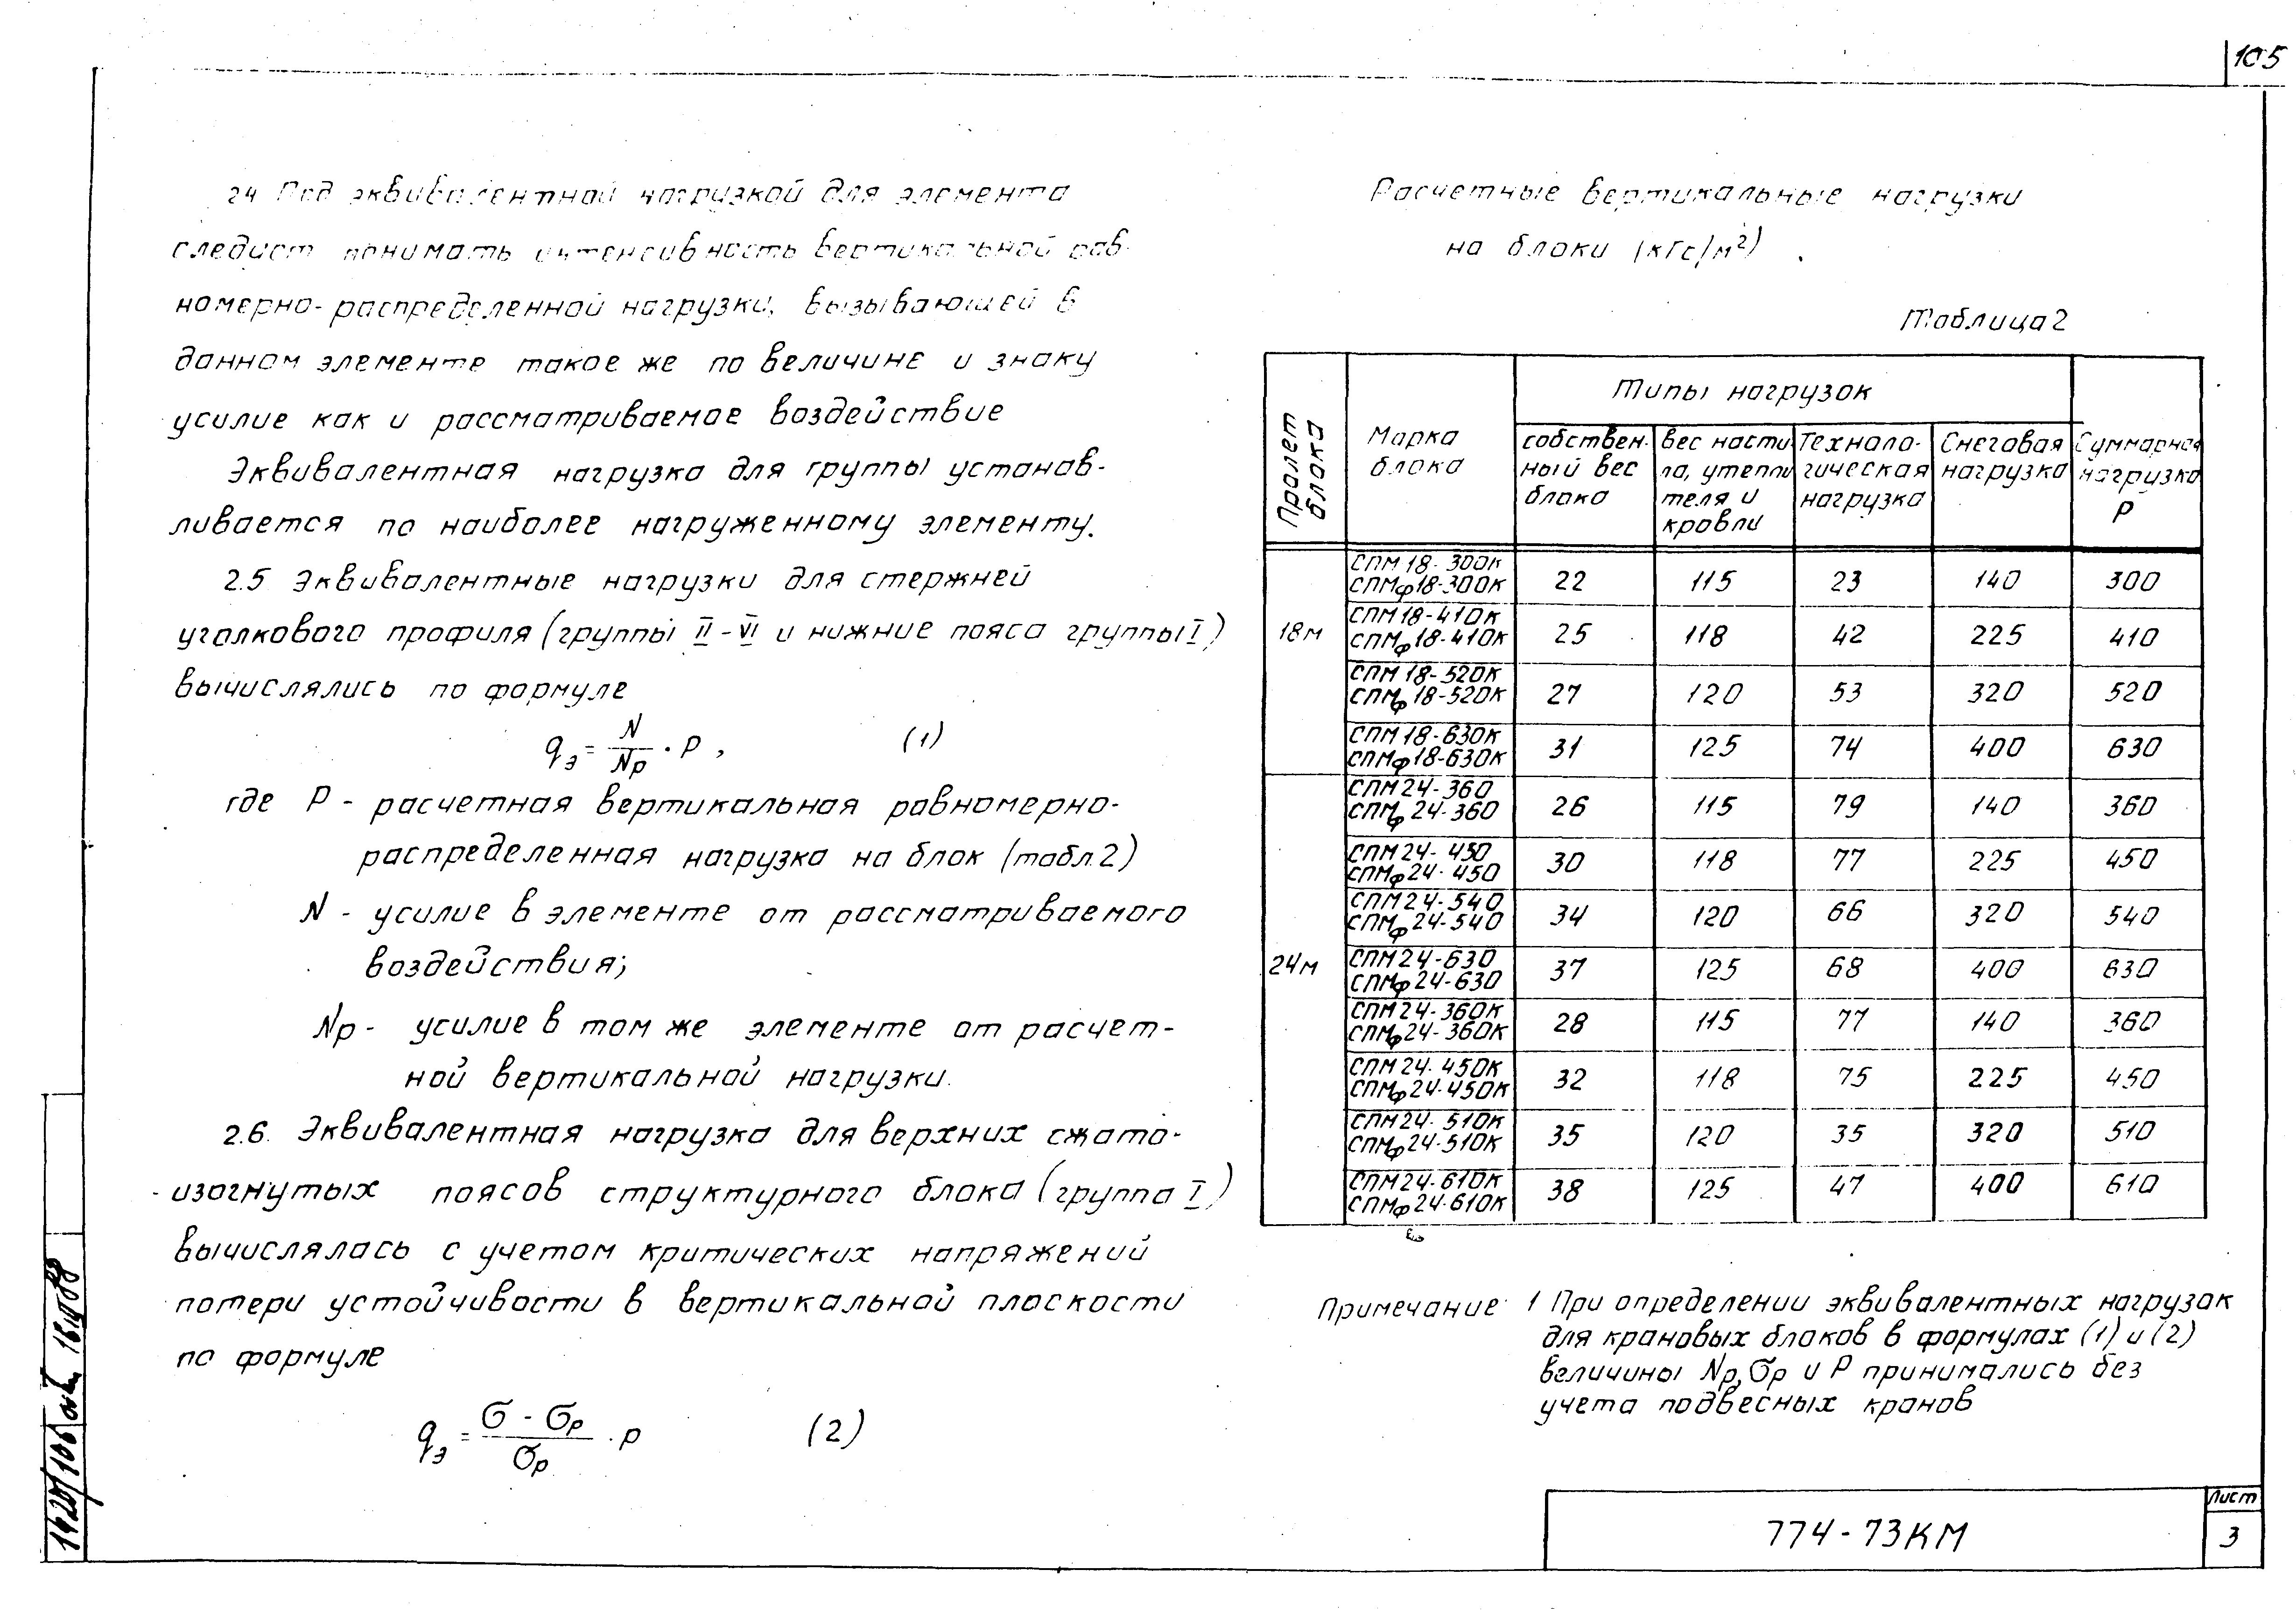 105
2.4 Под эквивалентной нагрузкой для элемента
следует понимать интенсивность вертикальной рав-
номерно-распределенной нагрузки, вызывающей в
данном элементе такое же по величине и знаку
усилие как и рассматриваемое воздействие
Эквивалентная нагрузка для группы устанав-
ливается по наиболее нагруженному элементу.
2.5 Эквивалентные нагрузки для стержней
уголкового профиля (группы II-VI и нижние пояса группы I)
вычислялись по формуле
qэ = N/Np · P, (1)
где P - расчетная вертикальная равномерно-
распределенная нагрузка на блок (табл.2)
N - усилие в элементе от рассматриваемого
воздействия;
Np - усилие в том же элементе от расчет-
ной вертикальной нагрузки.
2.6. Эквивалентная нагрузка для верхних сжато-
изогнутых поясов структурного блока (группа I)
вычислялась с учетом критических напряжений
потери устойчивости в вертикальной плоскости
по формуле
qэ = (σ - σp)/σp · P (2)
Расчетные вертикальные нагрузки
на блоки (кгс/м²)
Таблица 2
Пролет блока
Марка блока
Типы нагрузок
собствен-ный вес блока
вес насти ла, утепли теля и кровли
Техноло-гическая нагрузка
Снеговая нагрузка
Суммарная нагрузка P
18м
СПМ 18-300К
СПМф18-300К 22 115 23 140 300
СПМ 18-410К
СПМф18-410К 25 118 42 225 410
СПМ 18-520К
СПМф18-520К 27 120 53 320 520
СПМ 18-630К
СПМф18-630К 31 125 74 400 630
24м
СПМ24-360
СПМф24-360 26 115 79 140 360
СПМ24-450
СПМф24-450 30 118 77 225 450
СПМ24-540
СПМф24-540 34 120 66 320 540
СПМ24-630
СПМф24-630 37 125 68 400 630
СПМ24-360К
СПМф24-360К 28 115 77 140 360
СПМ24-450К
СПМф24-450К 32 118 75 225 450
СПМ24-510К
СПМф24-510К 35 120 35 320 510
СПМ24-610К
СПМф24-610К 38 125 47 400 610
Примечание 1 При определении эквивалентных нагрузок
для крановых блоков в формулах (1) и (2)
величины Np, σp и P принимались без
учета подвесных кранов
774-73КМ
Лист
3